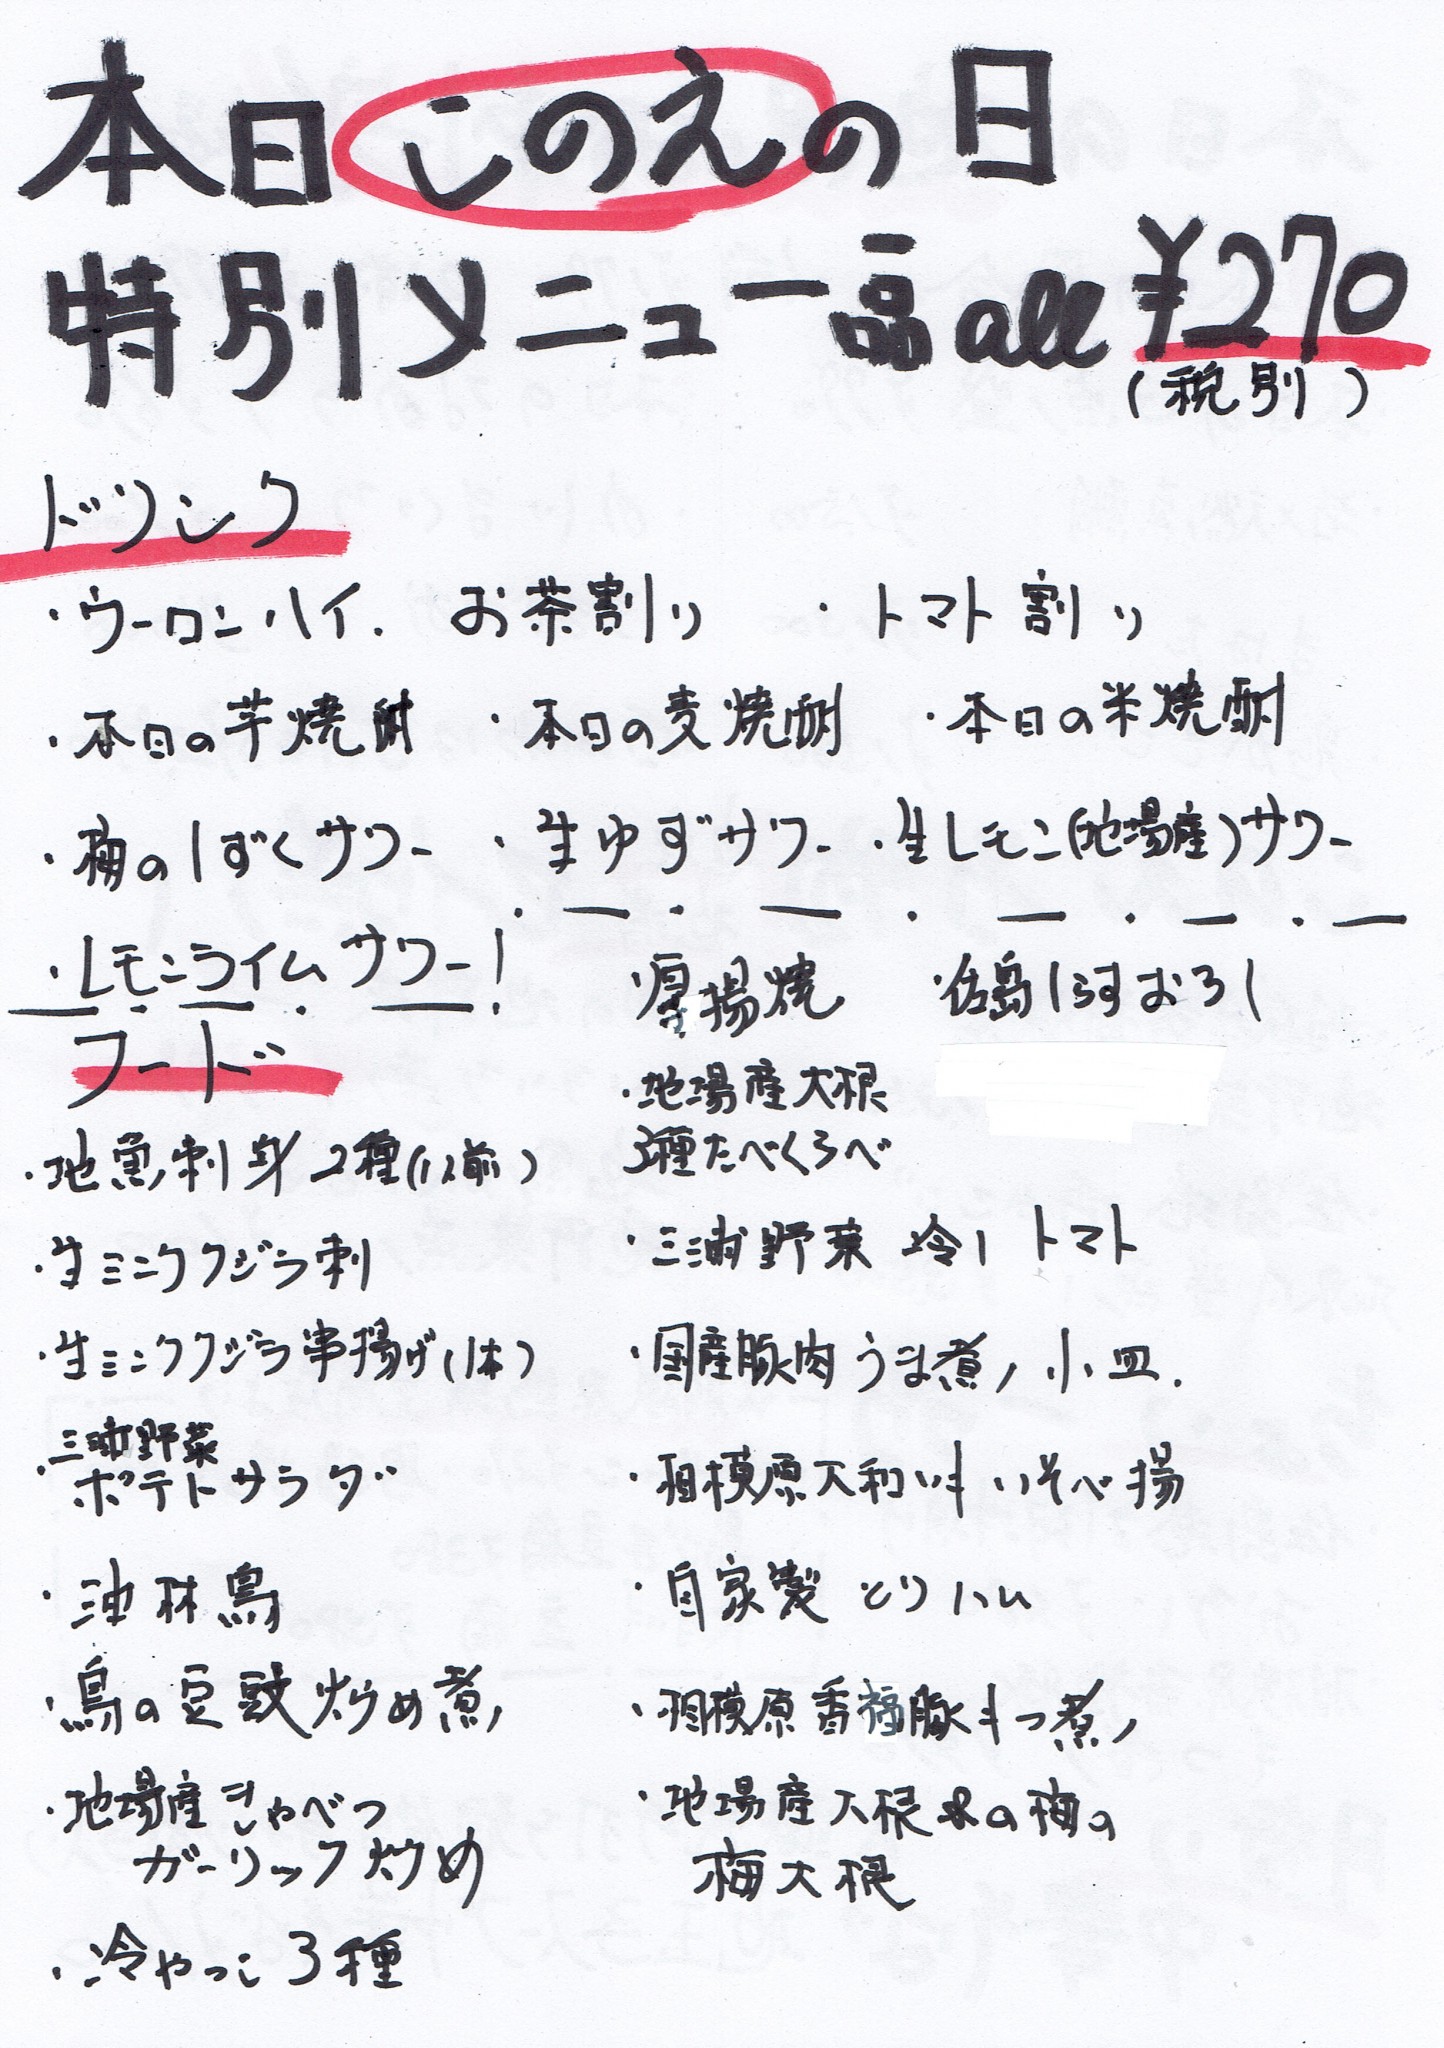 本日このえの日
特別メニュー一品all ¥270
(税別)
ドリンク
・ウーロンハイ. お茶割り ・トマト割り
・本日の芋焼酎 ・本日の麦焼酎 ・本日の米焼酎
・梅のしずくサワー ・生ゆずサワー ・生レモン(地場産)サワー
・レモンライムサワー!
フード
・地魚刺身2種(1人前)
・生ミンククジラ刺
・生ミンククジラ串揚げ(1本)
・三浦野菜
ポテトサラダ
・油林鳥
・鳥の豆豉炒め煮
・地場産きゃべつ
ガーリック炒め
・冷やっこ3種
・厚揚焼 ・佐島しらすおろし
・地場産大根
3種たべくらべ
・三浦野菜 冷しトマト
・国産豚肉うま煮 小皿.
・相模原大和いも いそべ揚
・自家製 とりハム
・相模原香福豚もつ煮
・地場産大根 の梅の
梅大根